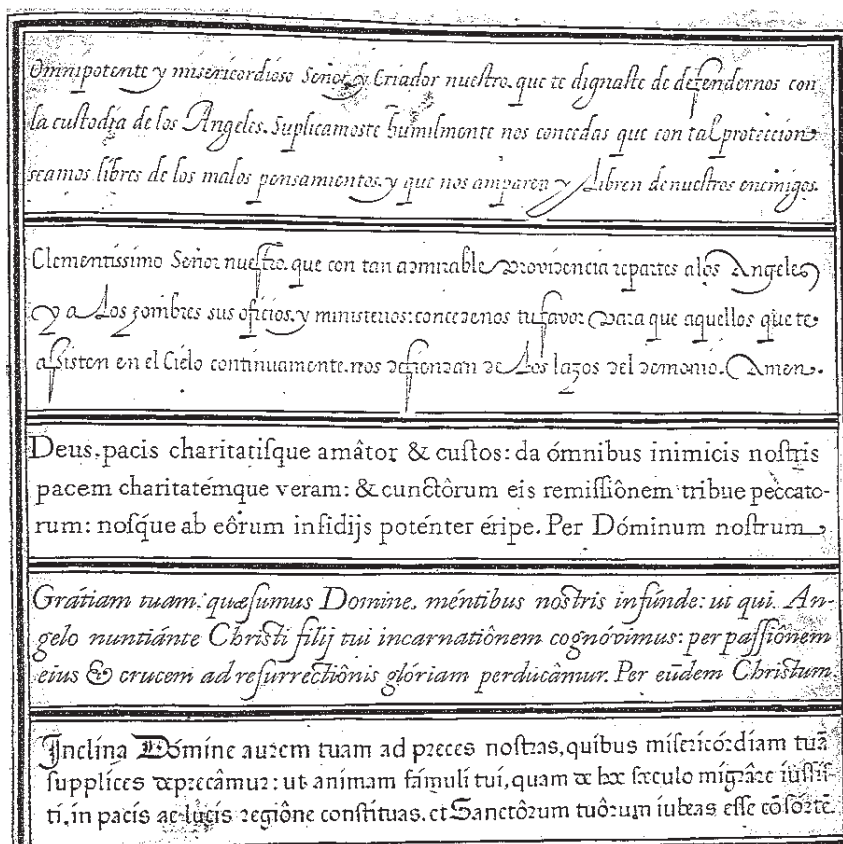 Omnipotente y misericordioso Señor, y Criador nuestro. que te dignaste de defendernos con
la custodia de los Angeles. Suplicamoste humilmente nos concedas que con tal proteccion
seamos libres de los malos pensamientos. y que nos amparen y Libren de nuestros enemigos.
Clementissimo Señor nuestro. que con tan admirable Providencia repartes a los Angeles
y a Los hombres sus oficios. y ministerios: concedenos tu favor Para que aquellos que te
assisten en el Cielo continuamente. nos defiendan de Los lazos del demonio. Amen.
Deus, pacis charitatisque amâtor & custos: da ómnibus inimicis nostris
pacem charitatémque veram: & cunctôrum eis remissiônem tribue peccato-
rum: nosq́ue ab eôrum insidijs poténter éripe. Per Dóminum nostrum
Grátiam tuam, quæsumus Domine, méntibus nostris infúnde: ut qui, An-
gelo nuntiánte Christi filij tui incarnatiônem cognóvimus: per passiônem
eius & crucem ad resurrectiônis glóriam perducâmur. Per eūdem Christum
Inclina Dómine aurem tuam ad preces nostras, quibus misericórdiam tuā
supplices deprecâmur: ut animam fámuli tui, quam de hoc sæculo migrâre iussis-
ti, in pacis ac lucis regiône constituas, et Sanctôrum tuôrum iubeas esse cōsórtē.